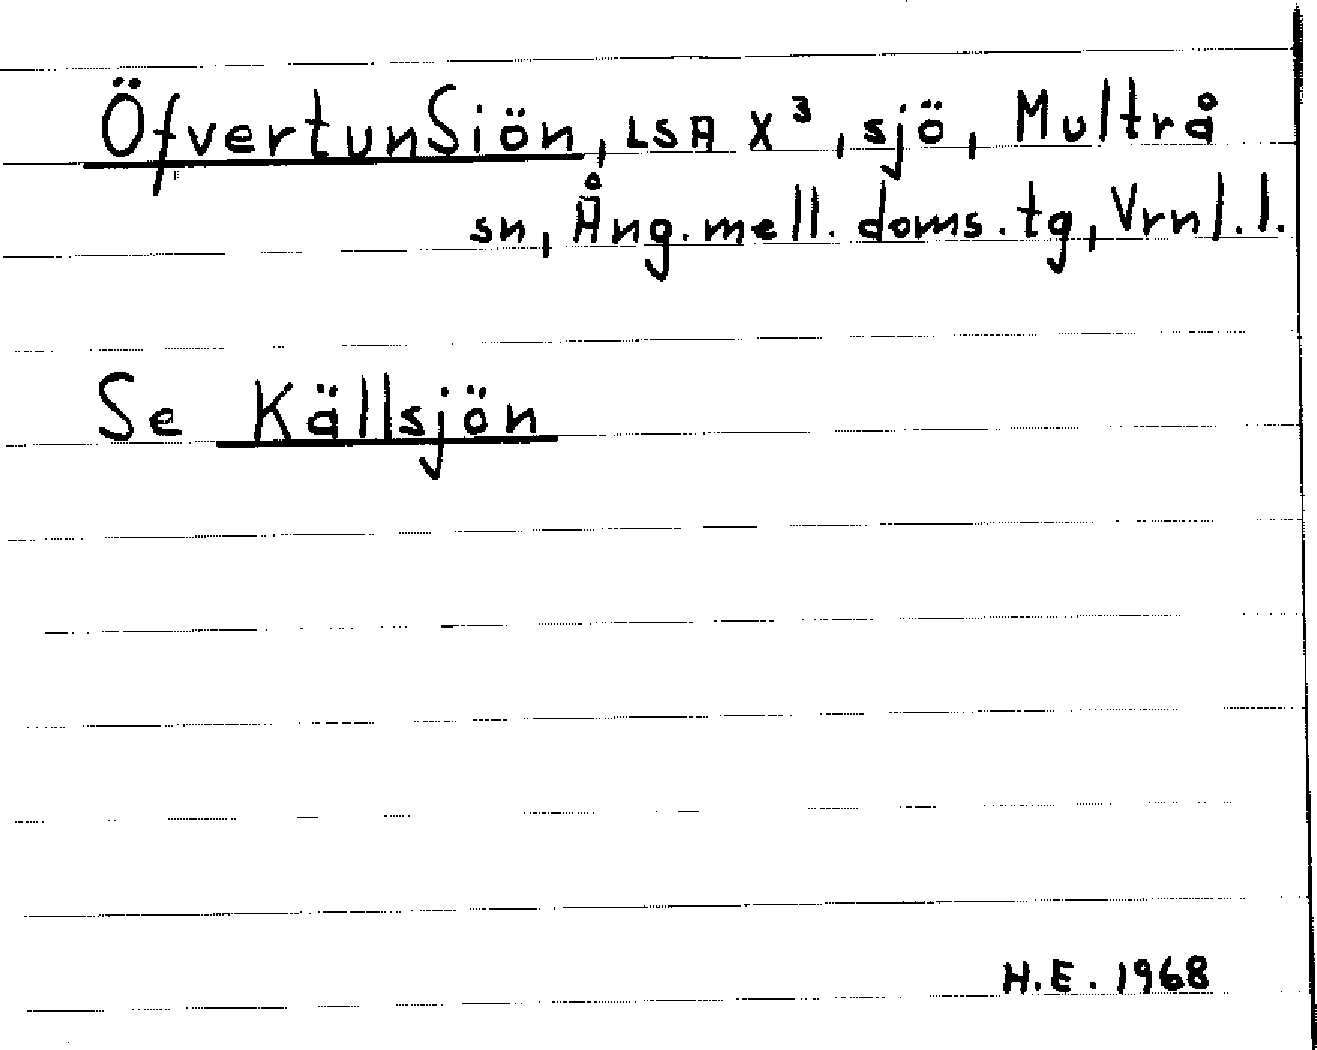 ÖfvertunSiön, LSA X³, sjö, Multrå
sn, Ång. mell. doms. tg, Vrnl. l.
Se Källsjön
H.E. 1968